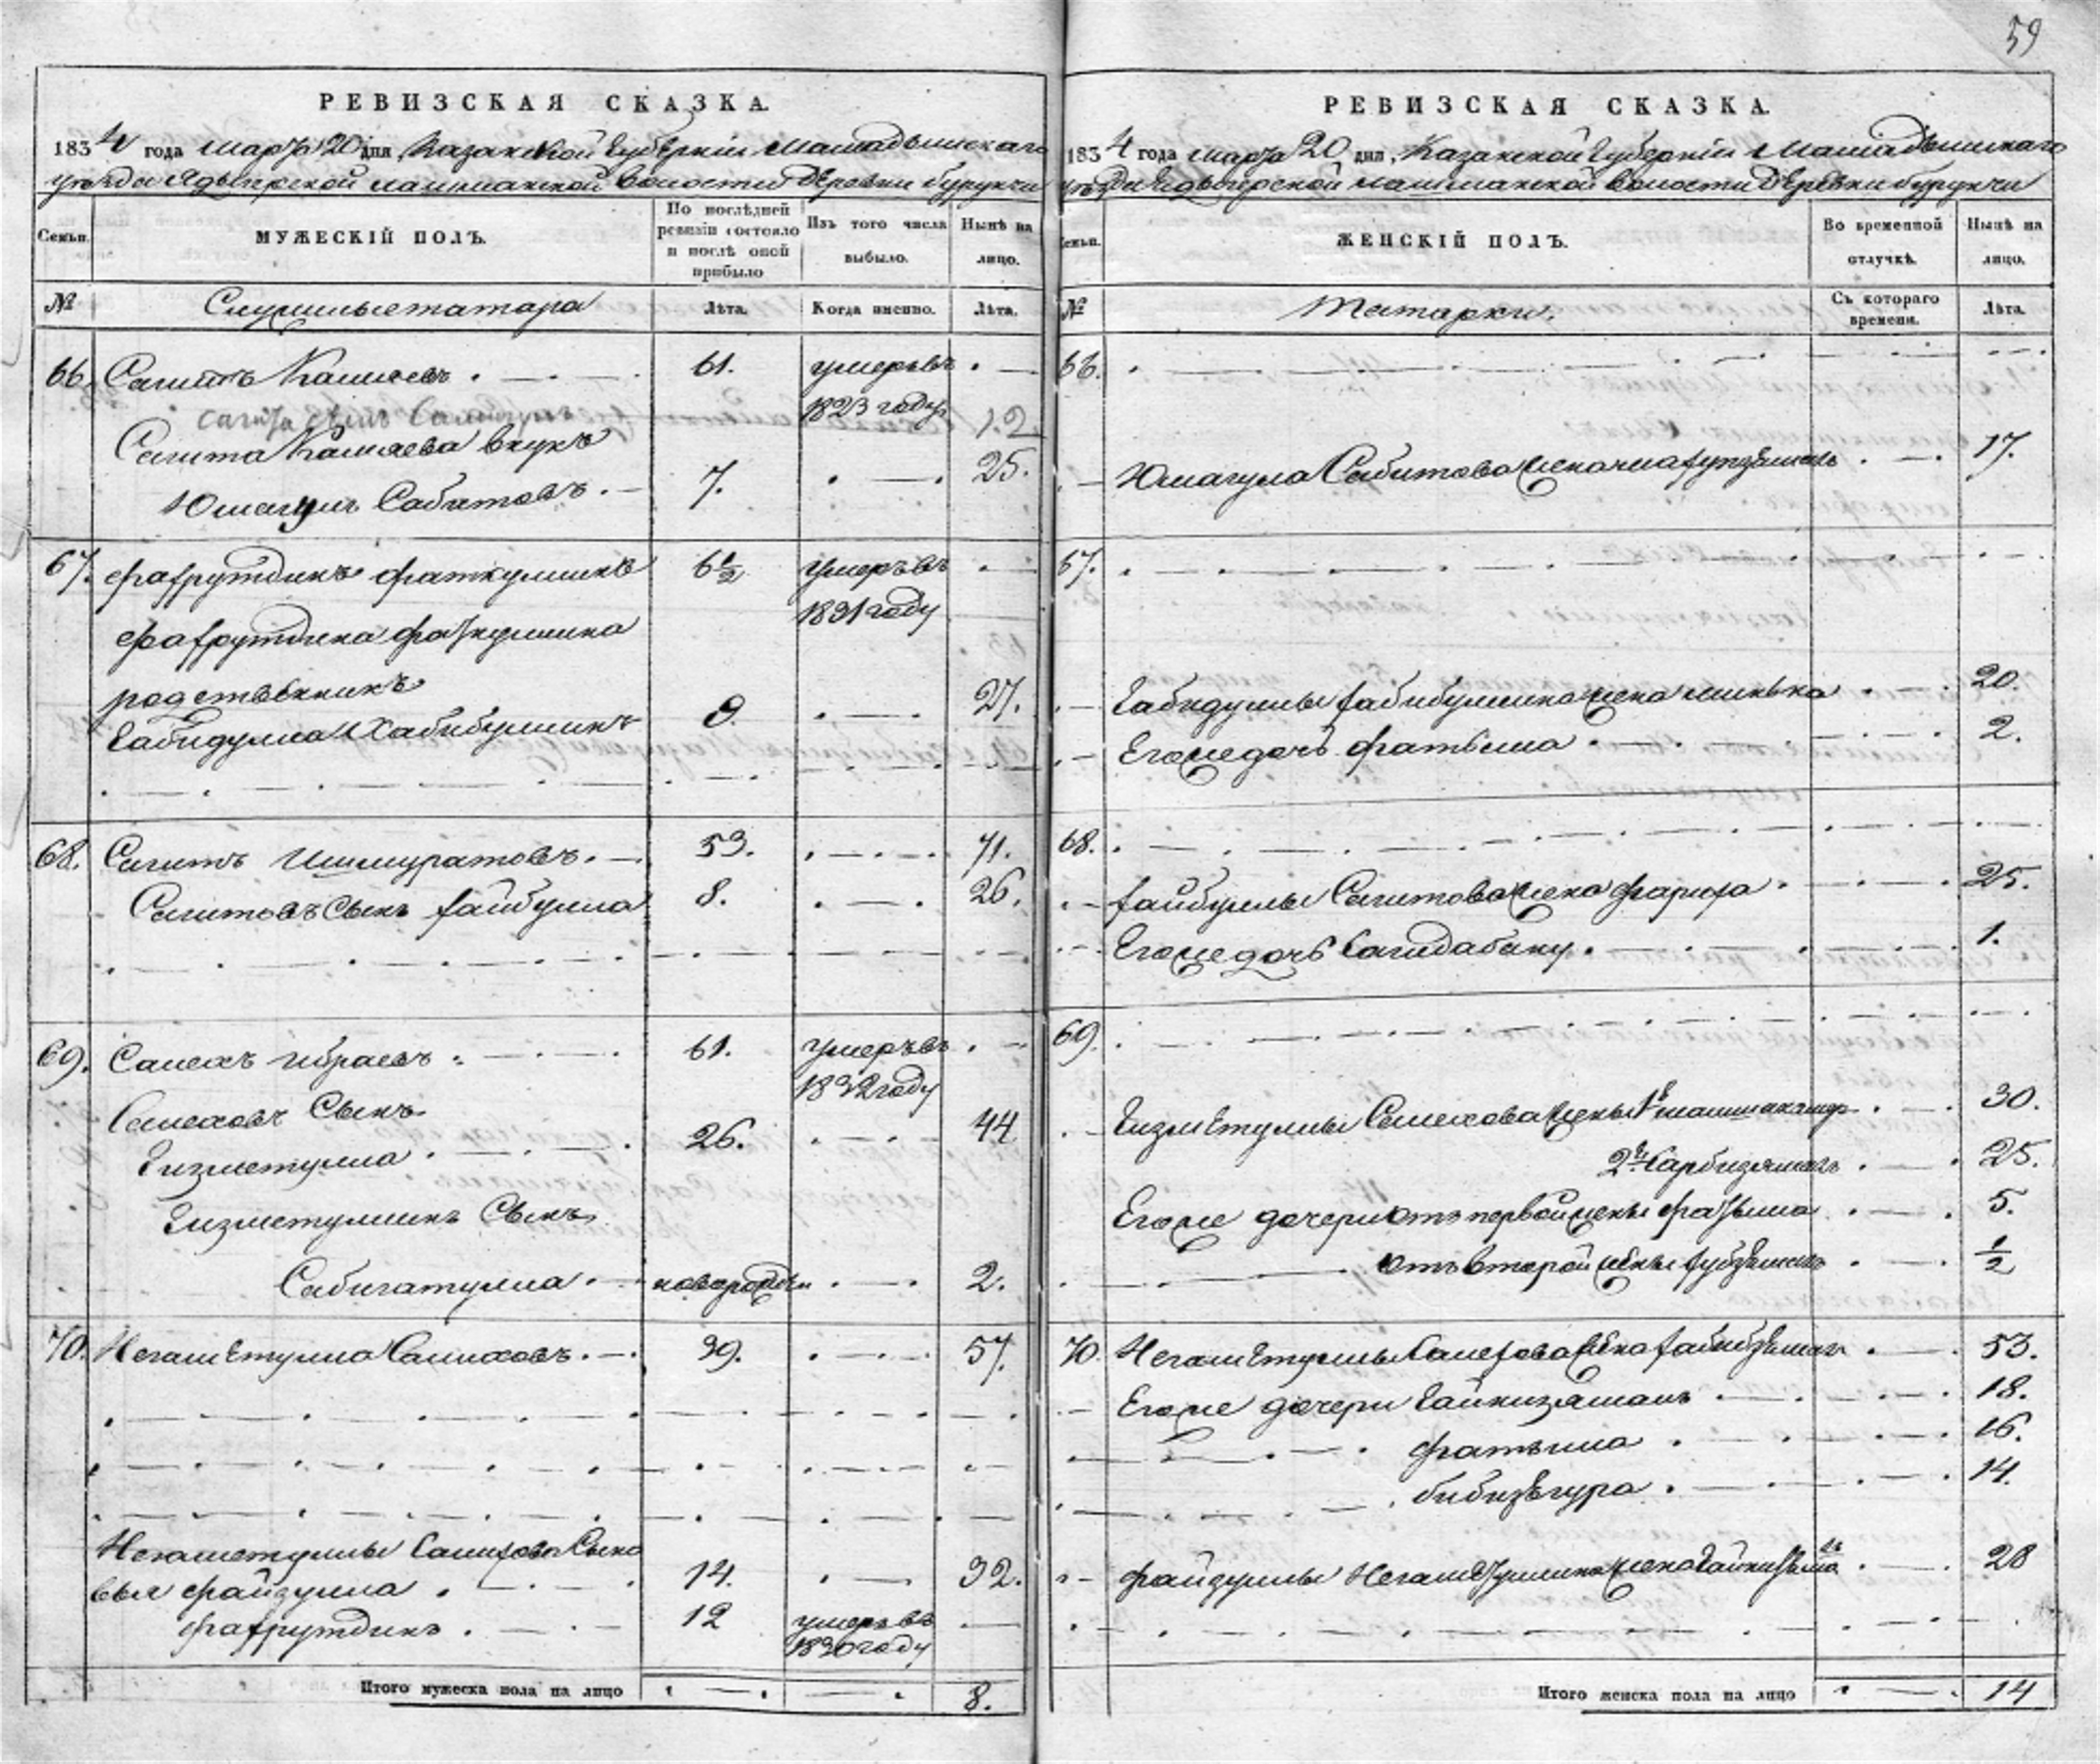 59
РЕВИЗСКАЯ СКАЗКА.
1834 года марта 20 дня, Казанской Губерніи Мамадышскаго
уѣзда Ядыгерской лашманской волости деревни бурунчи
Семьи. МУЖЕСКІЙ ПОЛЪ. По послѣдней ревизіи состояло и послѣ оной прибыло Изъ того числа выбыло. Нынѣ на лицо.
№ Служилые татара Лѣта. Когда именно. Лѣта.
66. Сагитъ 61. умеръ въ
1823 году
12
Сагита внукъ 25.
Юмагулъ Сабитовъ 7.
67. Фахрутдинъ Фаткуллинъ 6 1/2 умеръ въ
1831 году
Фахрутдина Фаткуллина
родственникъ 27.
Габидулла Хабибуллинъ 9.
68. Сагитъ Ишмуратовъ 53. 71.
Сагитовъ сынъ хайбулла 8. 26.
69. Салехъ Ибраевъ 61. умеръ въ
1832 году
Салеховъ сынъ 44
Гизметулла 26.
Гизметуллинъ сынъ
Сабигатулла новорожден 2.
70. Негаметулла Салиховъ 39. 57.
Негаметуллы Салихова сыно
вья файзулла 14. 32.
фахрутдинъ 12 умеръ въ
1830 году
Итого мужеска пола на лицо 8.
РЕВИЗСКАЯ СКАЗКА.
1834 года марта 20 дня, Казанской Губерніи Мамадышскаго
уѣзда Ядыгерской лашманской волости деревни бурунчи
Семьи. ЖЕНСКІЙ ПОЛЪ. Во временной отлучкѣ. Нынѣ на лицо.
№ Татарки. Съ котораго времени. Лѣта.
66.
Юмагула Сабитова жена 17.
67.
Габидуллы хабибуллина жена 20.
Его же дочь фатыма 2.
68.
хайбуллы Сагитова жена 25.
Его же дочь Сагидабану 1.
69.
Гизметуллы Салехова жены 1я 30.
2я 25.
Его же дочери отъ первой жены фатыма 5.
отъ второй жены 1/2
70. Негаметуллы Салехова жена 53.
Его же дочери 18.
фатыма 16.
14.
файзуллы Негаметуллина жена 28
Итого женска пола на лицо 14